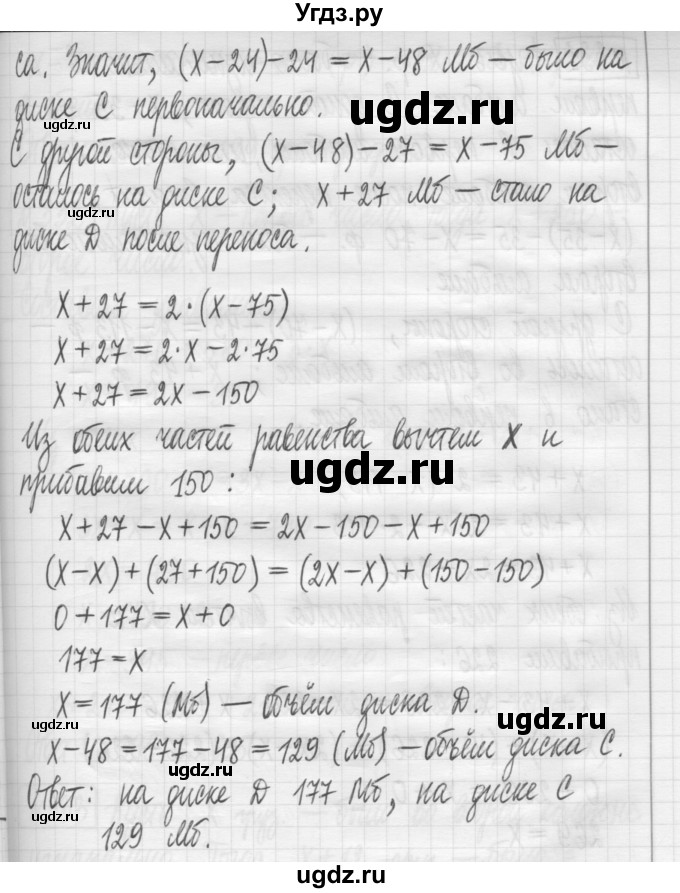 Угдз.ру
са. Значит, (х-24)-24 = х-48 Мб - было на
диске С первоначально.
С другой стороны, (х-48)-27 = х-75 Мб -
осталось на диске С; х+27 Мб - стало на
диске D после переноса.
х+27=2·(х-75)
х+27=2·х-2·75
х+27=2х-150
Из обеих частей равенства вычтем х и
прибавим 150:
х+27-х+150=2х-150-х+150
(х-х)+(27+150)=(2х-х)+(150-150)
0+177=х+0
177=х
х=177 (Мб) - объём диска D.
х-48=177-48=129 (Мб)-объём диска С.
Ответ: на диске D 177 Мб, на диске С
129 Мб.
ugdz.ru
ugdz.ru
ugdz.ru
ugdz.ru
ugdz.ru
ugdz.ru
ugdz.ru
ugdz.ru
ugdz.ru
ugdz.ru